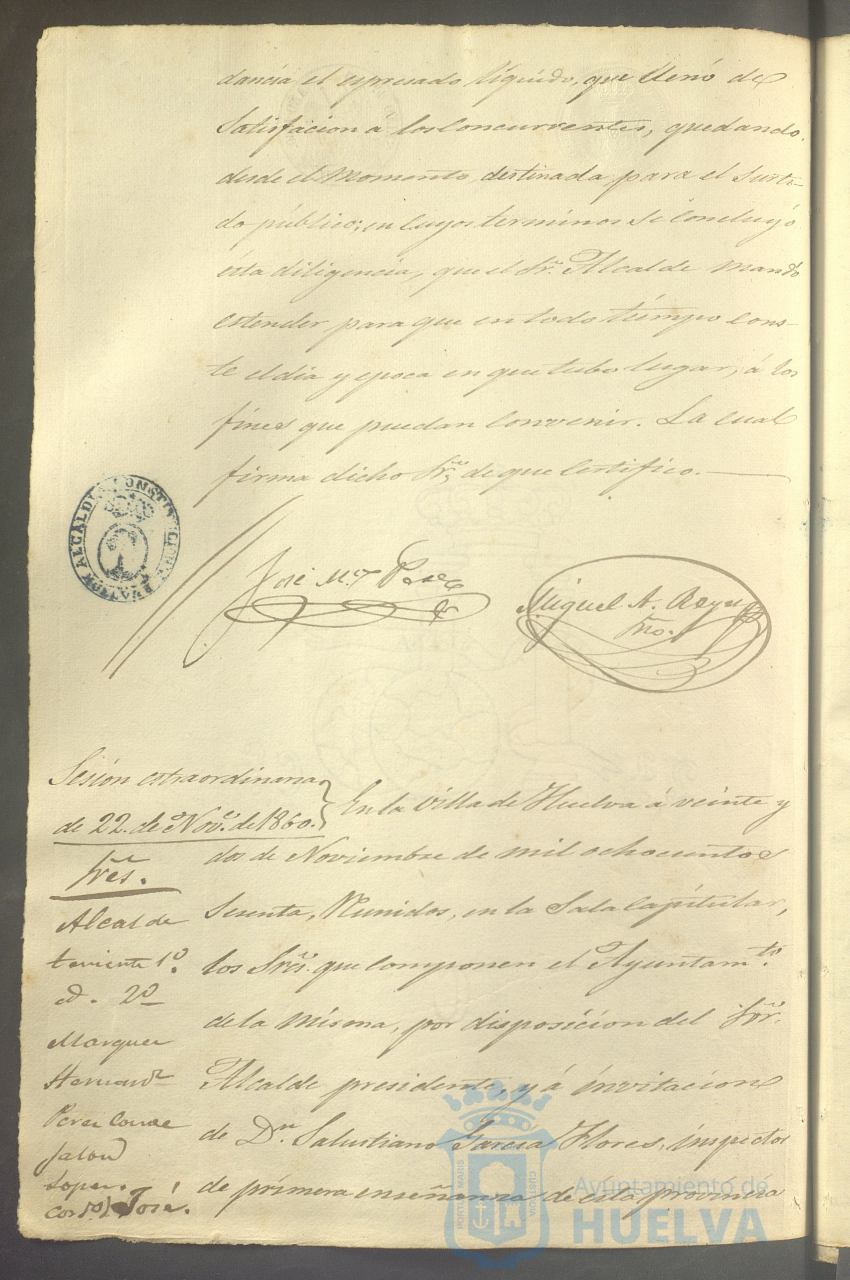 dancia el espresado liquido, que llenó de
Satisfacion á los Concurrentes, quedando
desde el Momento, destinada para el Surti-
do público; en Cuyos terminos se Concluyó
ésta diligencia, que el Sr. Alcalde mandó
estender para que en todo tiempo Cons-
te el dia y epoca en que tubo lugar, á los
fines que puedan Convenir. La cual
firma dicho Sr., de que Certifico.
ALCALDIA CONSTITUCIONAL
José M.ª Perez
Miguel A. 
Srio.
Sesión estraordinaria
de 22. de Nov.e de 1860.
Sres.
Alcalde
teniente 1º.
id. 2º
Marquez
Hernand.z
Perez Conde
Jalon
Lopez
Cor.do, José.
En la Villa de Huelva á veinte y
dos de Noviembre de mil ochocientos
Sesenta, Reunidos, en la Sala Capitular,
los Sres. que componen el Ayuntam.to
de la Misma, por disposicion del Sor.
Alcalde presidente, y á invitacion
de D.n Salustiano Garcia Flores, inspector
de primera enseñanza de esta provincia
PORTUS MARIS
CUSTODIA
Ayuntamiento de
HUELVA